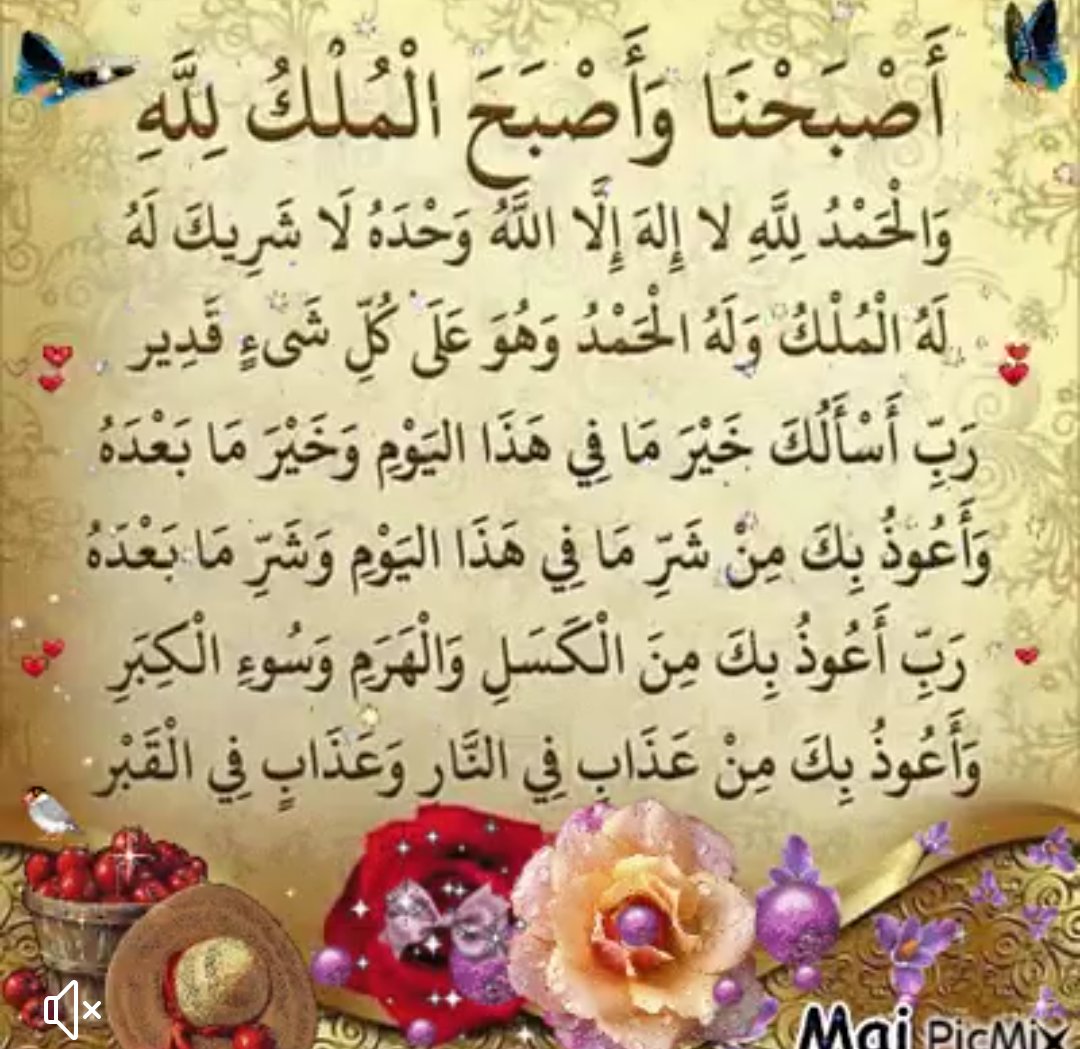 أَصْبَحْنَا وَأَصْبَحَ الْمُلْكُ لِلَّهِ
وَالْحَمْدُ لِلَّهِ لا إِلهَ إِلَّا اللَّهُ وَحْدَهُ لَا شَرِيكَ لَهُ
لَهُ الْمُلْكُ وَلَهُ الْحَمْدُ وَهُوَ عَلَى كُلِّ شَىءٍ قَدِير
رَبِّ أَسْأَلُكَ خَيْرَ مَا فِي هَذَا اليَوْمِ وَخَيْرَ مَا بَعْدَهُ
وَأَعُوذُ بِكَ مِنْ شَرِّ مَا فِي هَذَا اليَوْمِ وَشَرِّ مَا بَعْدَهُ
رَبِّ أَعُوذُ بِكَ مِنَ الْكَسَلِ وَالْهَرَمِ وَسُوءِ الْكِبَرِ
وَأَعُوذُ بِكَ مِنْ عَذَابٍ فِي النَّارِ وَعَذَابٍ فِي الْقَبْرِ
Mai PicMix